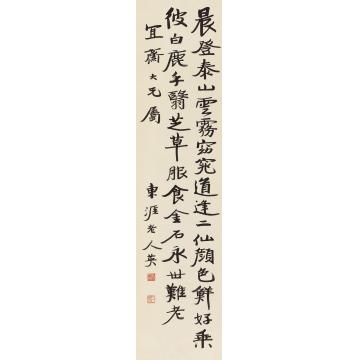 晨登泰山雲霧窈窕道逢二仙顏色鮮好乘
彼白鹿手翳芝草服食金石永世難老
宜大兄屬
東涯老人英